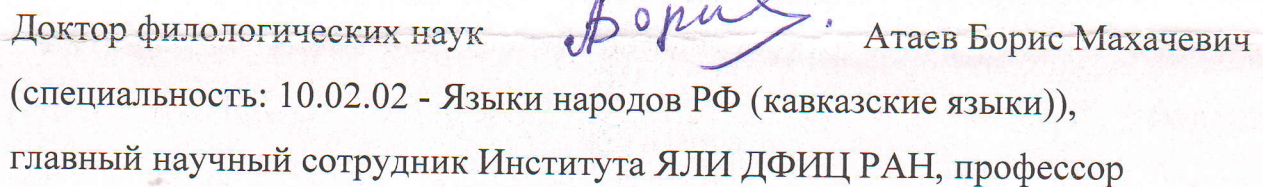 Доктор филологических наук Атаев Борис Махачевич
(специальность: 10.02.02 - Языки народов РФ (кавказские языки)),
главный научный сотрудник Института ЯЛИ ДФИЦ РАН, профессор